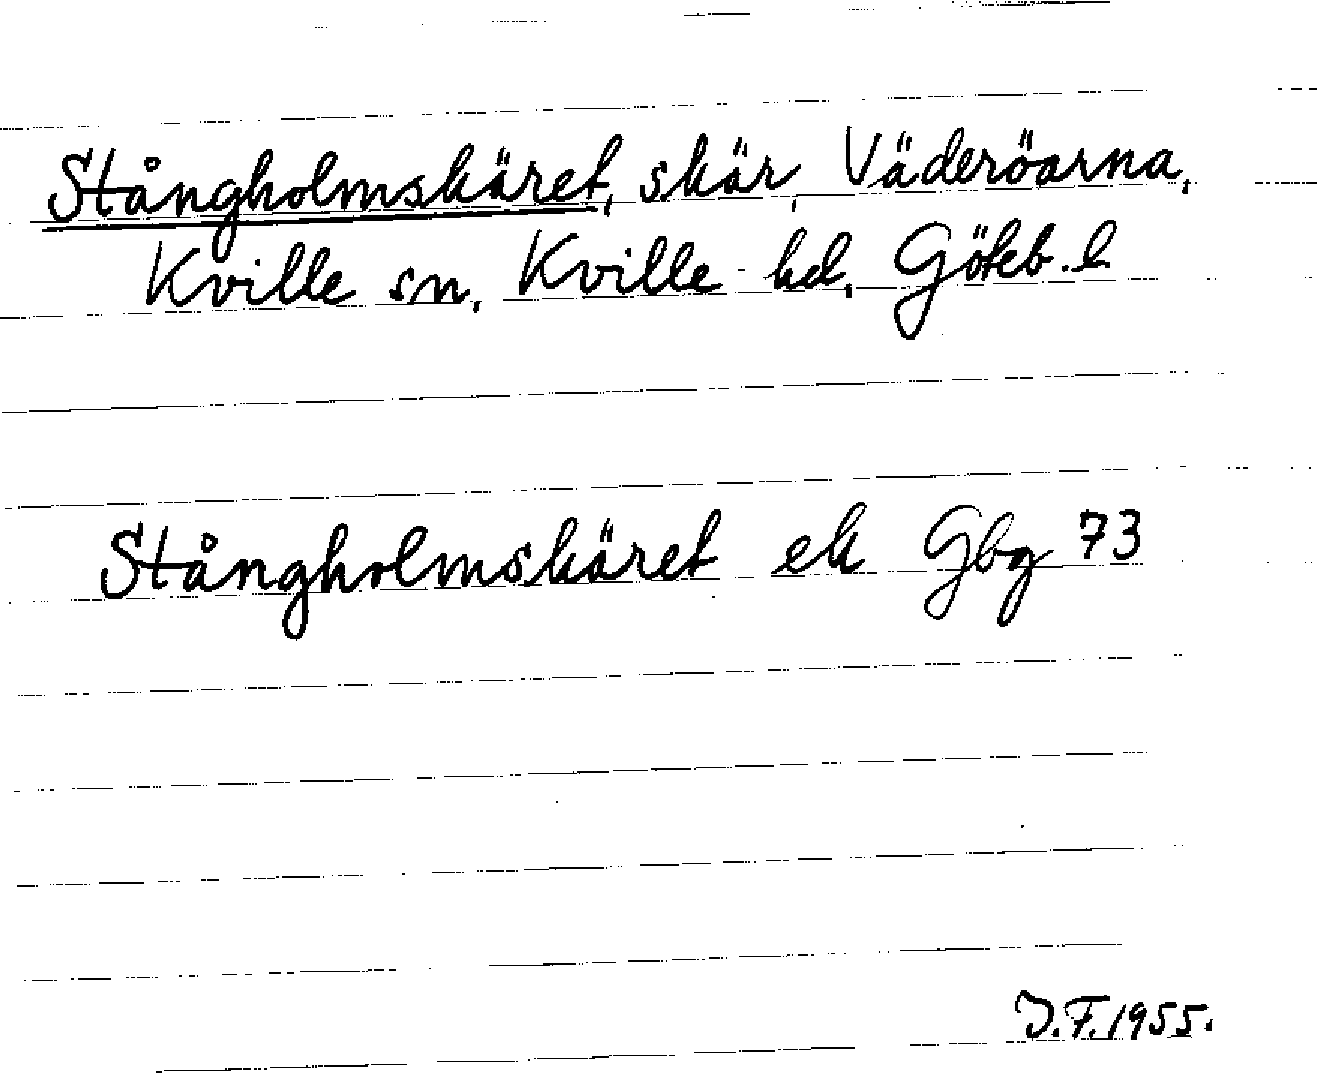 Stångholmskäret, skär, Väderöarna,
Kville sn, Kville hd, Göteb. l
Stångholmskäret ek Gbg 73
J.F. 1955.